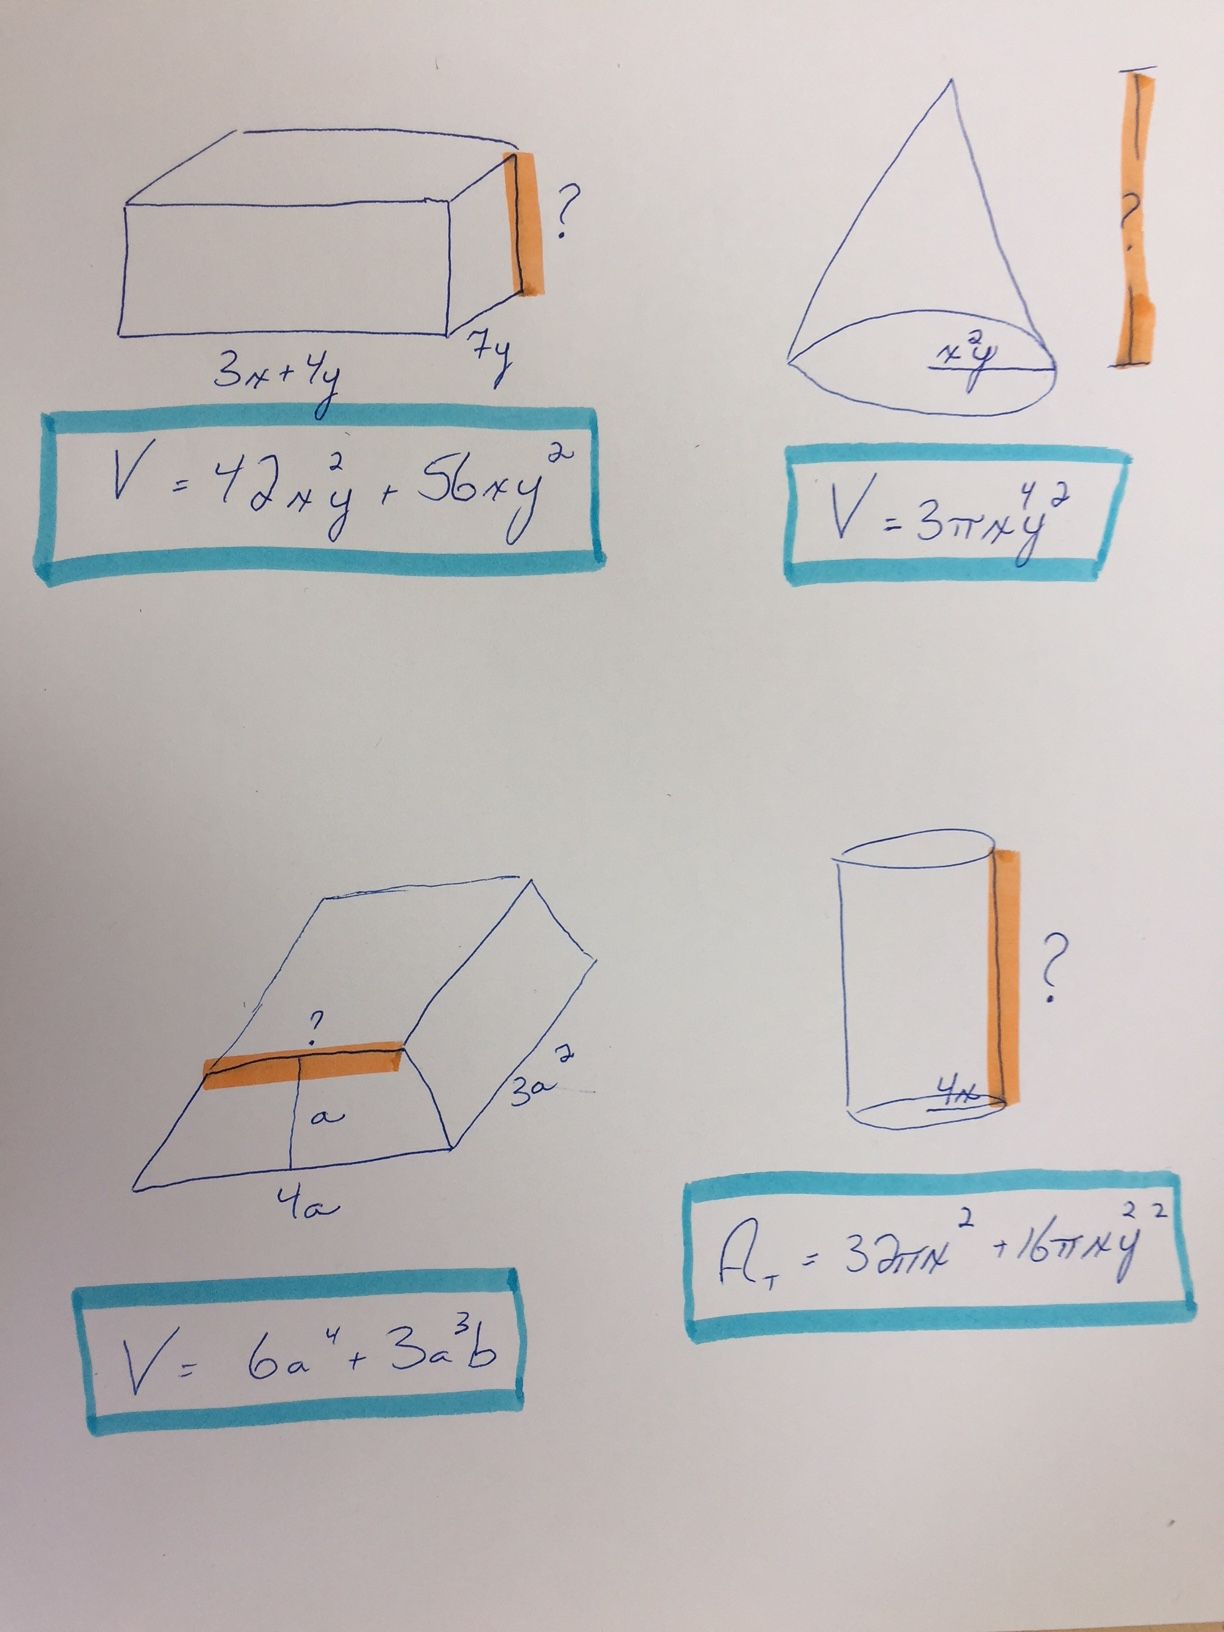 ?
3x+4y
7y
V = 42x²y + 56xy²
?
x²y
V = 3πx⁴y²
?
a
3a²
4a
V = 6a⁴ + 3a³b
?
4x
A_T = 32πx² + 16πxy² ²